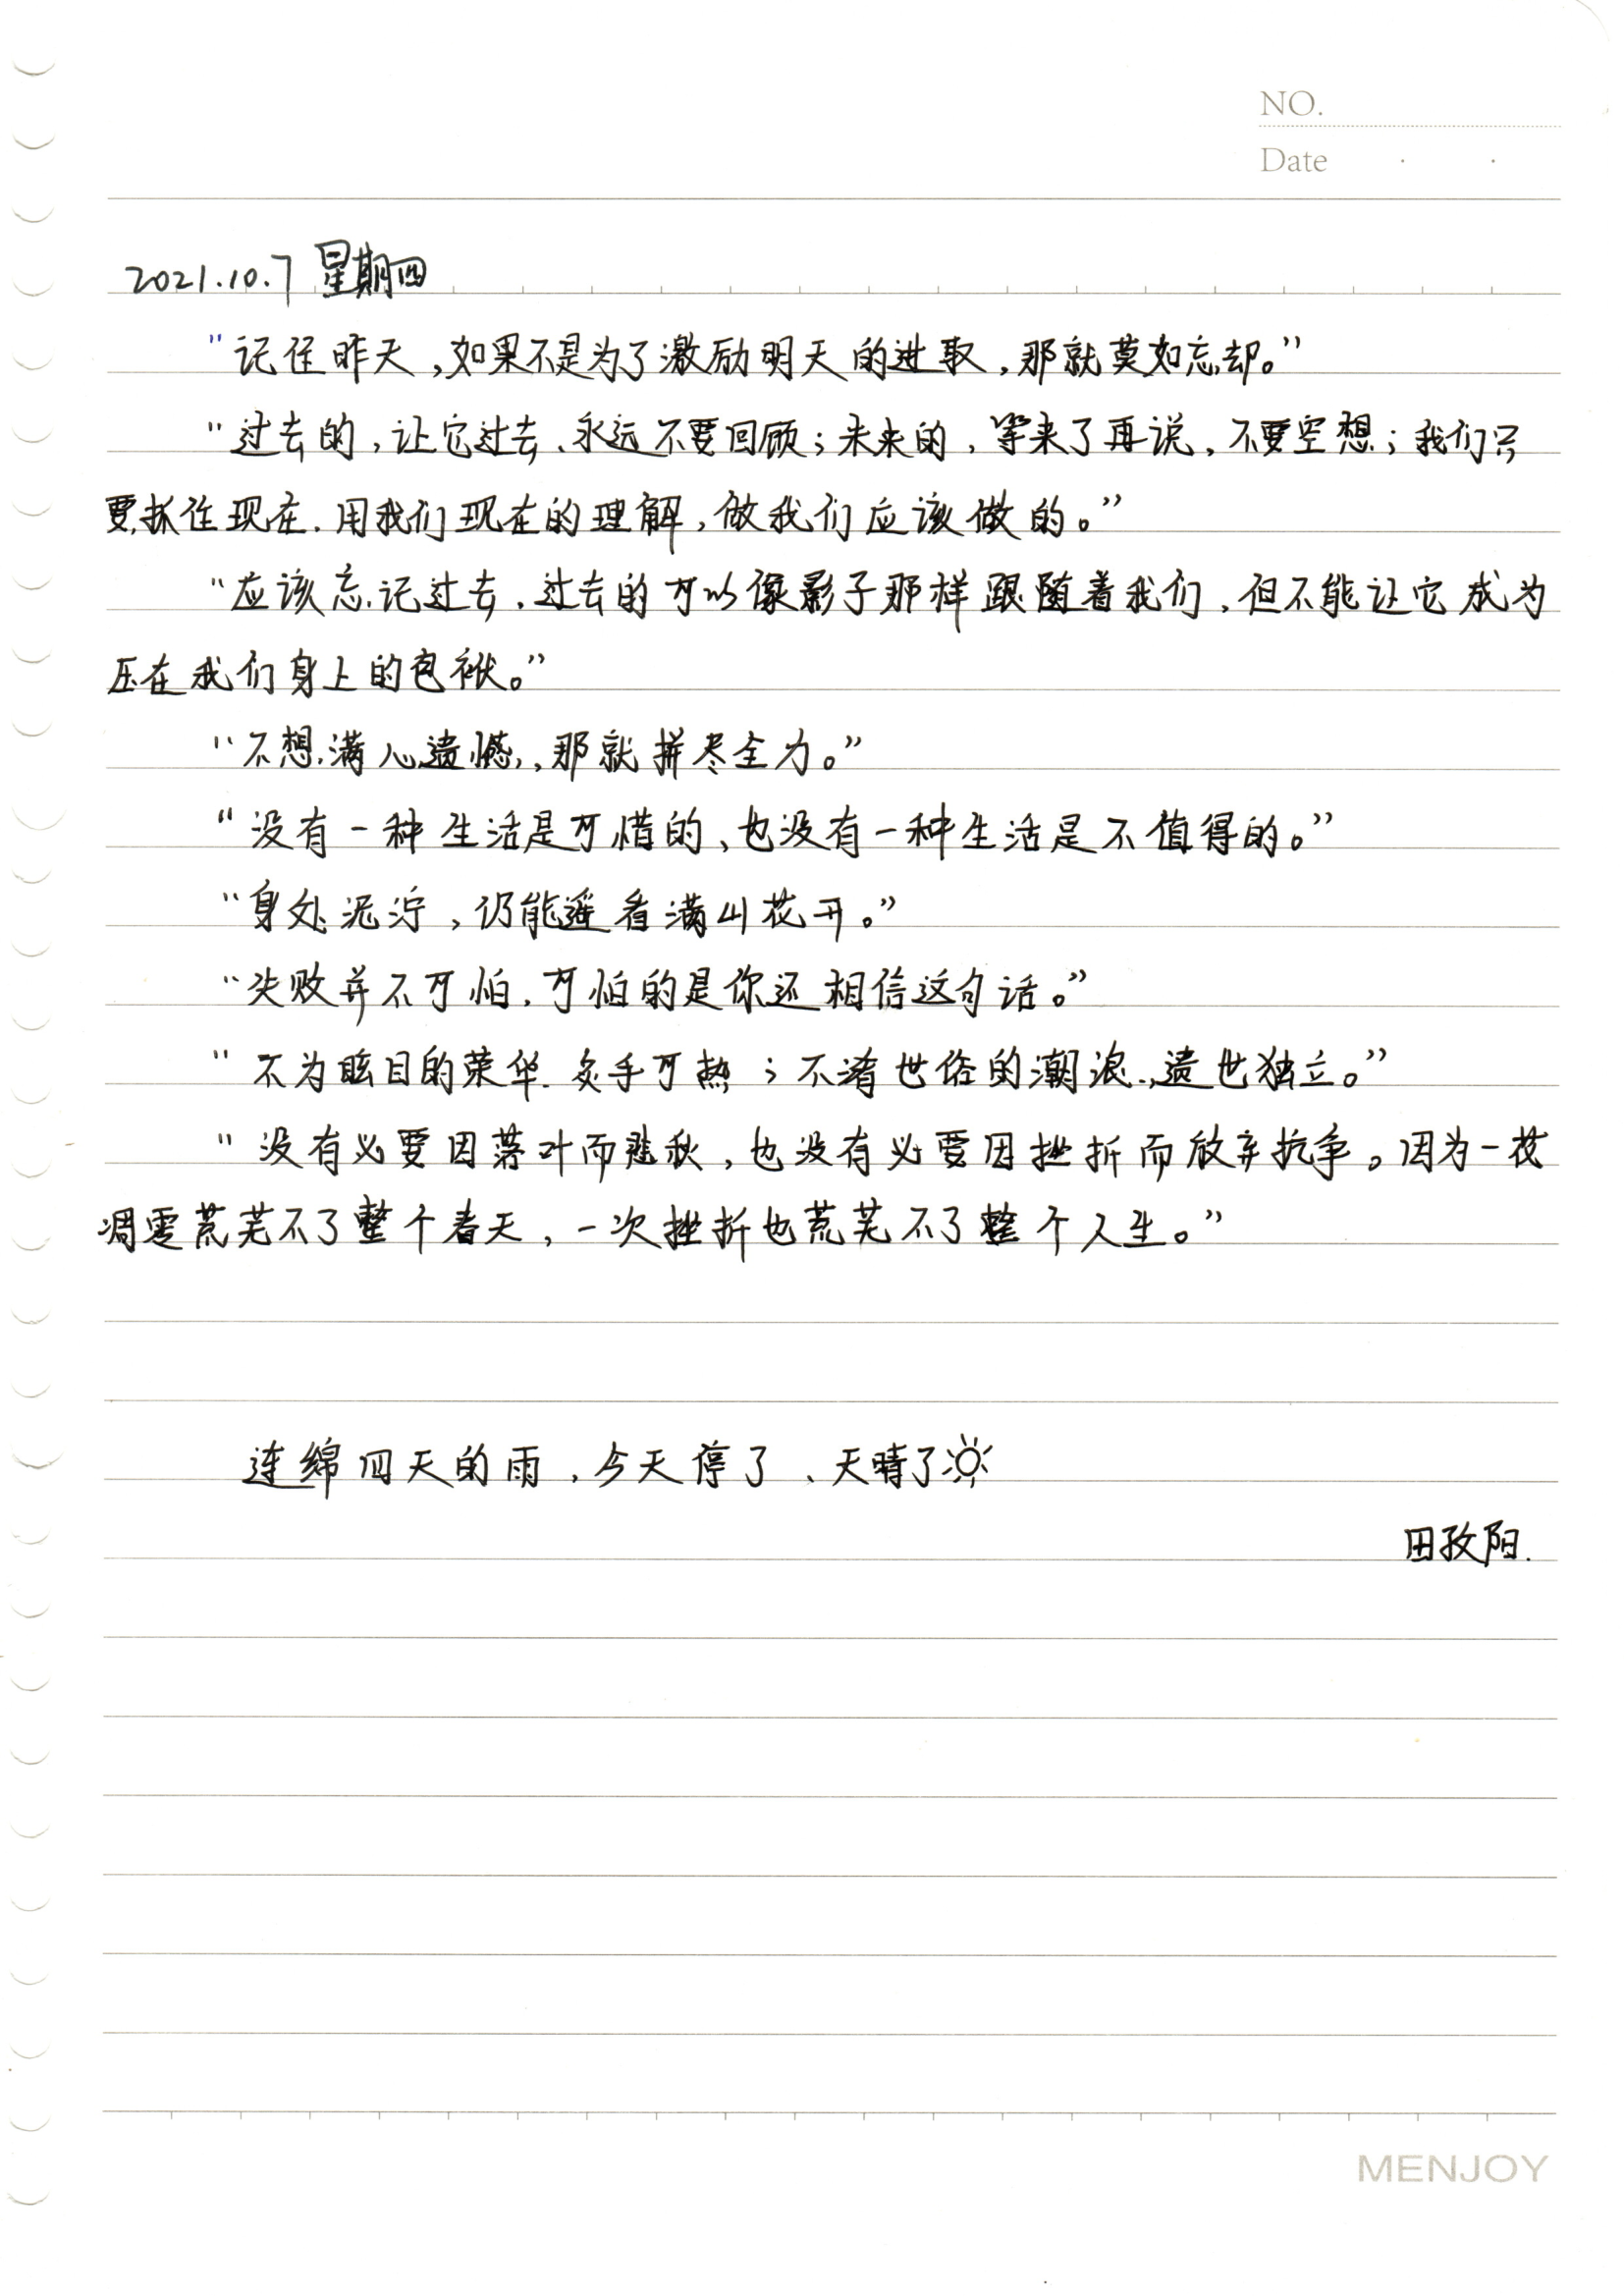 NO.
Date . .
2021.10.7 星期四
“记住昨天，如果不是为了激励明天的进取，那就莫如忘却。”
“过去的，让它过去、永远不要回顾；未来的，等来了再说，不要空想；我们只
要抓住现在.用我们现在的理解，做我们应该做的。”
“应该忘记过去，过去的可以像影子那样跟随着我们，但不能让它成为
压在我们身上的包袱。”
“不想满心遗憾，那就拼尽全力。”
“没有一种生活是可惜的、也没有一种生活是不值得的。”
“身处泥泞，仍能遥看满山花开。”
“失败并不可怕，可怕的是你还相信这句话。”
“不为眩目的荣华.炙手可热；不淆世俗的潮浪，遗世独立。”
“没有必要因落叶而悲秋，也没有必要因挫折而放弃抗争。因为一花
凋零荒芜不了整个春天，一次挫折也荒芜不了整个人生。”
连绵四天的雨，今天停了、天晴了
田孜阳.
MENJOY